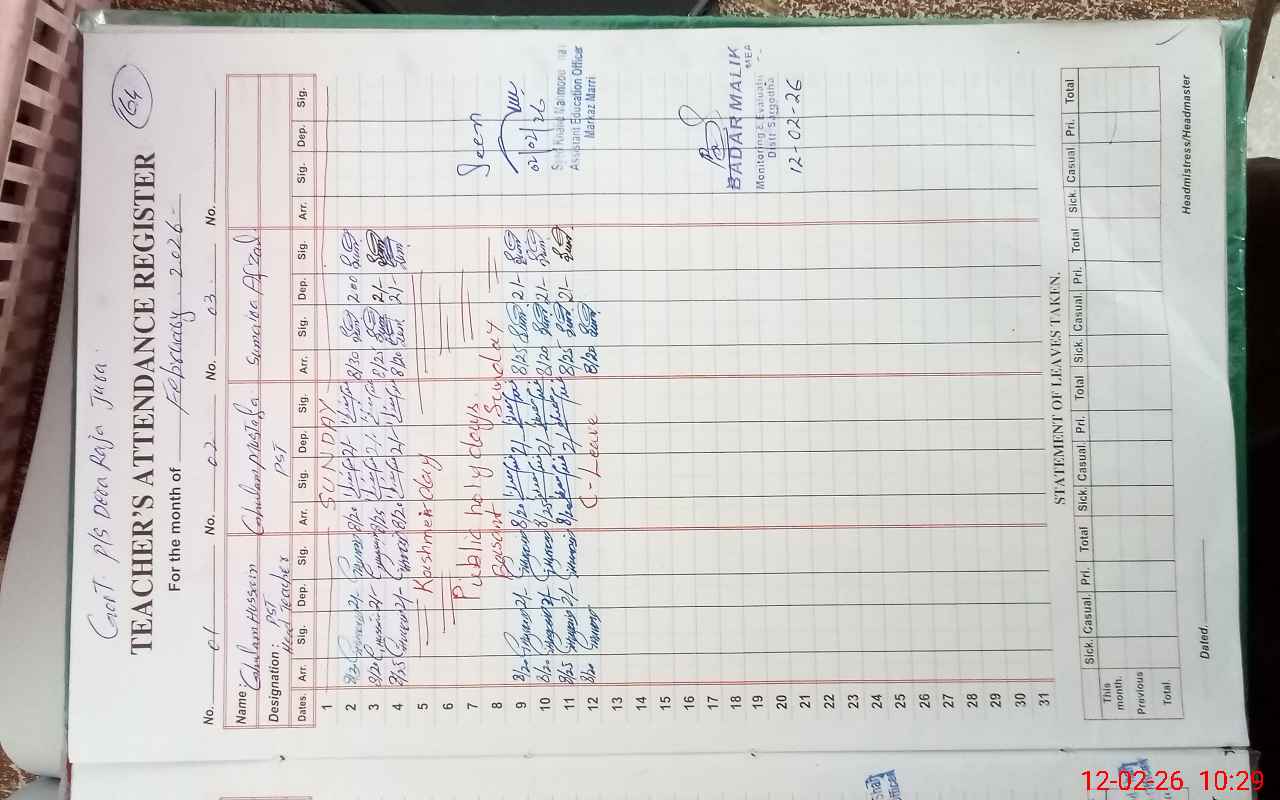 64
Govt. P/S Dera Raja Jura.
TEACHER'S ATTENDANCE REGISTER
For the month of February. 2026-
No. 01 No. 02 No. 03. No.
Name: Ghulam Hussein Ghulam Mustafa Sumaira Afzal.
Designation: PST Head Teacher PST
Dates. Arr. Sig. Dep. Sig. Arr. Sig. Dep. Sig. Arr. Sig. Dep. Sig. Arr. Sig. Dep. Sig.
1 SUNDAY
2 8/20 21- 8/20 21- 8/30 200
3 8/20 21- 8/25 21- 8/25 21-
4 8/25 21- 8/20 21- 8/20 21-
5 Kashmeir day
6
7 Public holy days.
8 Basant Sunday
9 8/20 21- 8/20 21- 8/25 21-
10 8/20 21- 8/25 21- 8/20 21-
11 8/25 21- 8/20 21- 8/25 21-
12 8/20 C-Leave 8/20
13
14
15
16
17
18
19
20
21
22
23
24
25
26
27
28
29
30
31
Seen
02/02/26
Assistant Education Officer
Markaz Marri
BADAR MALIK
MEA
Monitoring & Evaluati
Distt Sargodha
12-02-26
STATEMENT OF LEAVES TAKEN.
Sick. Casual. Pri. Total Sick. Casual. Pri. Total Sick. Casual. Pri. Total Sick. Casual Pri. Total
This month.
Previous
Total.
Dated.
Headmistress/Headmaster
12-02-26 10:29